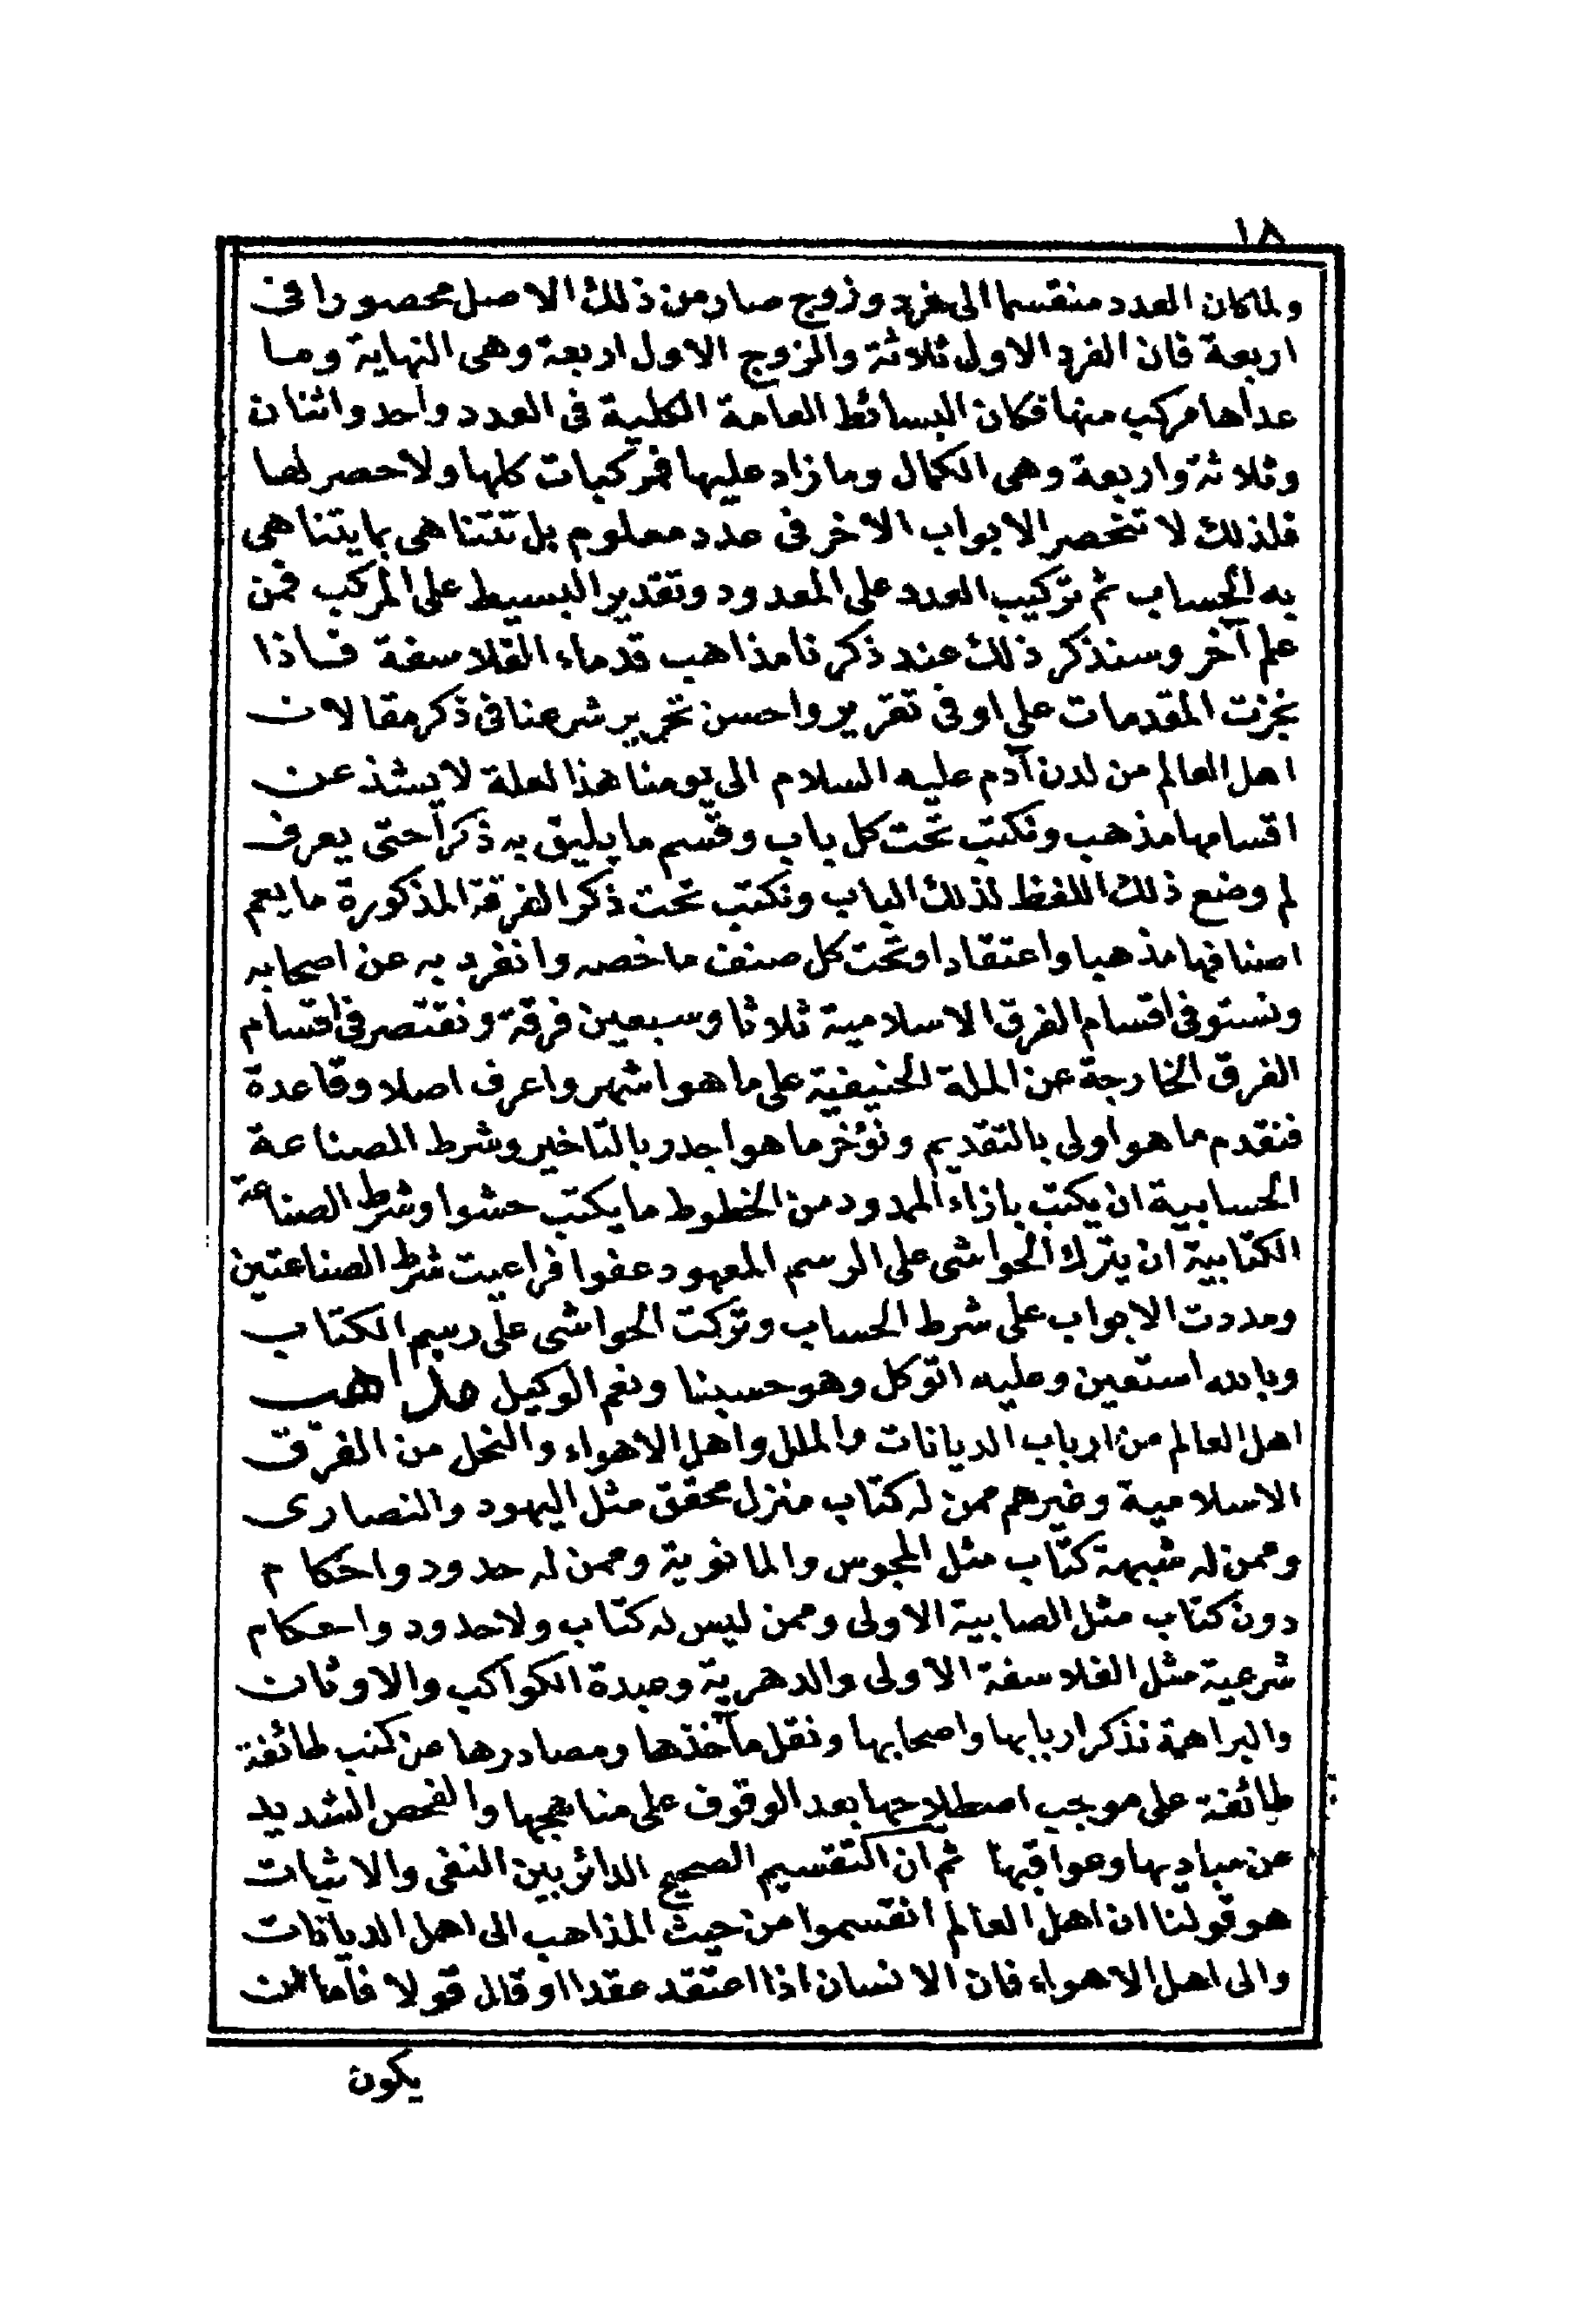 ١٨
ولما كان العدد منقسما الى فرد وزوج صار من ذلك الاصل محصورا فى
اربعة فان الفرد الاول ثلاثة والزوج الاول اربعة وهى النهاية وما
عداها مركب منها فكان البسائط العامة الكلية فى العدد واحد واثنان
وثلاثة واربعة وهى الكمال وما زاد عليها فمركبات كلها ولا حصر لها
فلذلك لا تنحصر الابواب الاخر فى عدد معلوم بل تتناهى بما يتناهى
به الحساب ثم تركيب العدد على المعدود وتقدير البسيط على المركب فمن
علم آخر وسنذكر ذلك عند ذكرنا مذاهب قدماء الفلاسفة فاذا
نجزت المقدمات على اوفى تقرير واحسن تحرير شرعنا فى ذكر مقالات
اهل العالم من لدن آدم عليه السلام الى يومنا هذا لعلة لا يشذ عن
اقسامها مذهب ونكتب تحت كل باب وقسم ما يليق به ذكرا حتى يعرف
لم وضع ذلك اللفظ لذلك الباب ونكتب تحت ذكر الفرقة المذكورة ما يعم
اصنافها مذهبا واعتقادا وتحت كل صنف ما خصه وانفرد به عن اصحابه
ونستوفى اقسام الفرق الاسلامية ثلاثا وسبعين فرقة ونقتصر فى اقسام
الفرق الخارجة عن الملة الحنيفية على ما هو اشهر واعرف اصلا وقاعدة
فنقدم ما هو اولى بالتقديم ونؤخر ما هو اجدر بالتاخير وشرط الصناعة
الحسابية ان يكتب بازاء الممدود من الخطوط ما يكتب حشوا وشرط الصناعة
الكتابية ان يترك الحواشى على الرسم المعهود عفوا فراعيت شرط الصناعتين
ومددت الابواب على شرط الحساب وتركت الحواشى على رسم الكتاب
وبالله استعين وعليه اتوكل وهو حسبنا ونعم الوكيل مذاهب
اهل العالم من ارباب الديانات والملل واهل الاهواء والنحل من الفرق
الاسلامية وغيرهم ممن له كتاب منزل محقق مثل اليهود والنصارى
وممن له شبهة كتاب مثل المجوس والمانوية وممن له حدود واحكام
دون كتاب مثل الصابية الاولى وممن ليس له كتاب ولا حدود واحكام
شرعية مثل الفلاسفة الاولى والدهرية وعبدة الكواكب والاوثان
والبراهمة نذكر اربابها واصحابها ونقل مآخذها ومصادرها عن كتب طائفة
طائفة على موجب اصطلاحها بعد الوقوف على مناهجها والفحص الشديد
عن مباديها وعواقبها ثم ان التقسيم الصحيح الدائر بين النفى والاثبات
هو قولنا ان اهل العالم انقسموا من حيث المذاهب الى اهل الديانات
والى اهل الاهواء فان الانسان اذا اعتقد عقدا او قال قولا فاما ان
يكون